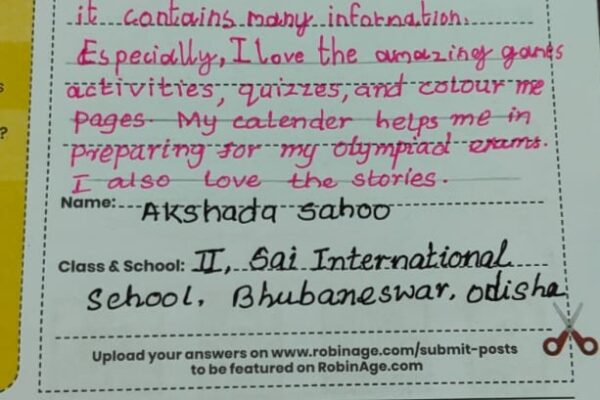 it contains many information.
Especially, I love the amazing games
activities, quizzes, and colour me
pages. My calender helps me in
preparing for my olympiad exams.
I also love the stories.
Name: Akshada Sahoo
Class & School: II, Sai International
School, Bhubaneswar, Odisha
Upload your answers on www.robinage.com/submit-posts
to be featured on RobinAge.com